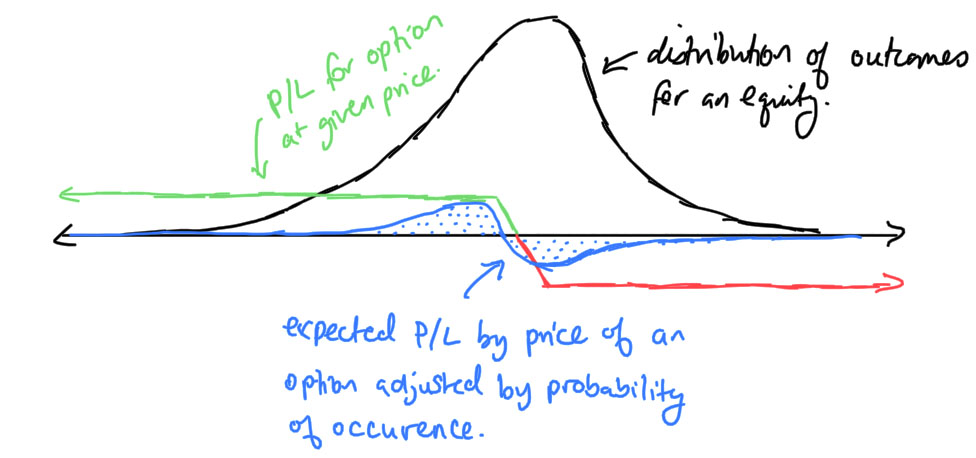 P/L for option
at given price.
distribution of outcomes
for an equity.
expected P/L by price of an
option adjusted by probability
of occurence.